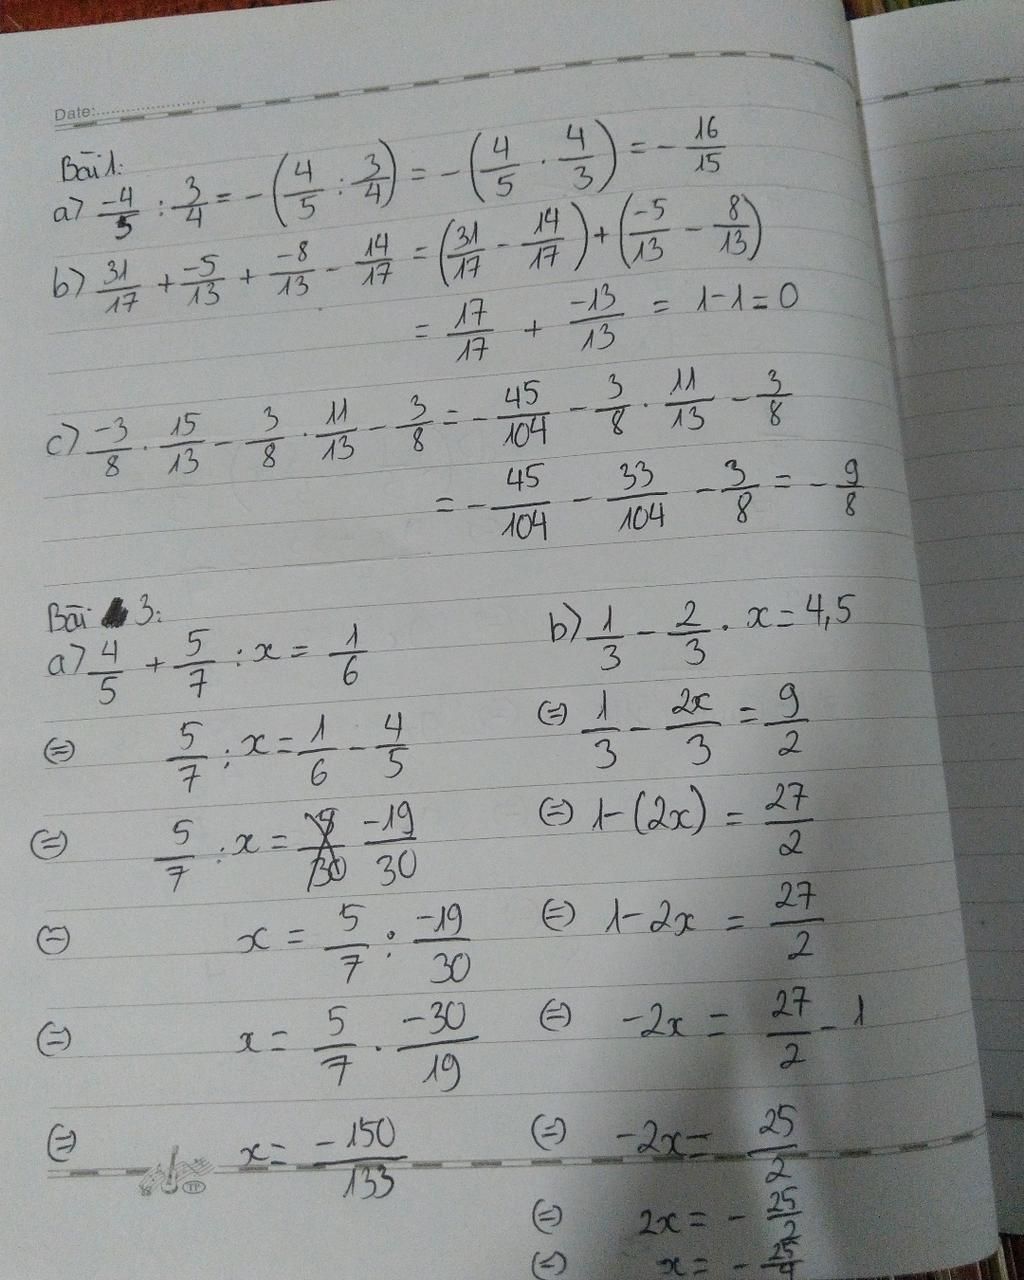 Date:
Bài 1:
a) -4/5 : 3/4 = -(4/5 : 3/4) = -(4/5 . 4/3) = - 16/15
b) 31/17 + -5/13 + -8/13 - 14/17 = (31/17 - 14/17) + (-5/13 - 8/13)
= 17/17 + -13/13 = 1-1=0
c) -3/8 . 15/13 - 3/8 . 11/13 - 3/8 = - 45/104 - 3/8 . 11/13 - 3/8
= - 45/104 - 33/104 - 3/8 = - 9/8
Bài 3:
a) 4/5 + 5/7 : x = 1/6
(=) 5/7 : x = 1/6 - 4/5
(=) 5/7 : x = -19/30
(=) x = 5/7 : -19/30
(=) x = 5/7 . -30/19
(=) x = -150/133
b) 1/3 - 2/3 . x = 4,5
(=) 1/3 - 2x/3 = 9/2
(=) 1-(2x) = 27/2
(=) 1-2x = 27/2
(=) -2x = 27/2 - 1
(=) -2x = 25/2
(=) 2x = - 25/2
(=) x = - 25/4
TP